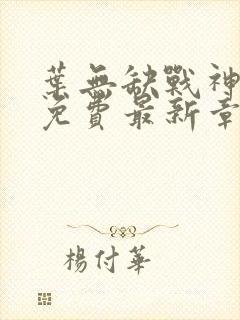 葉無缺戰神
免費最新章
楊付華